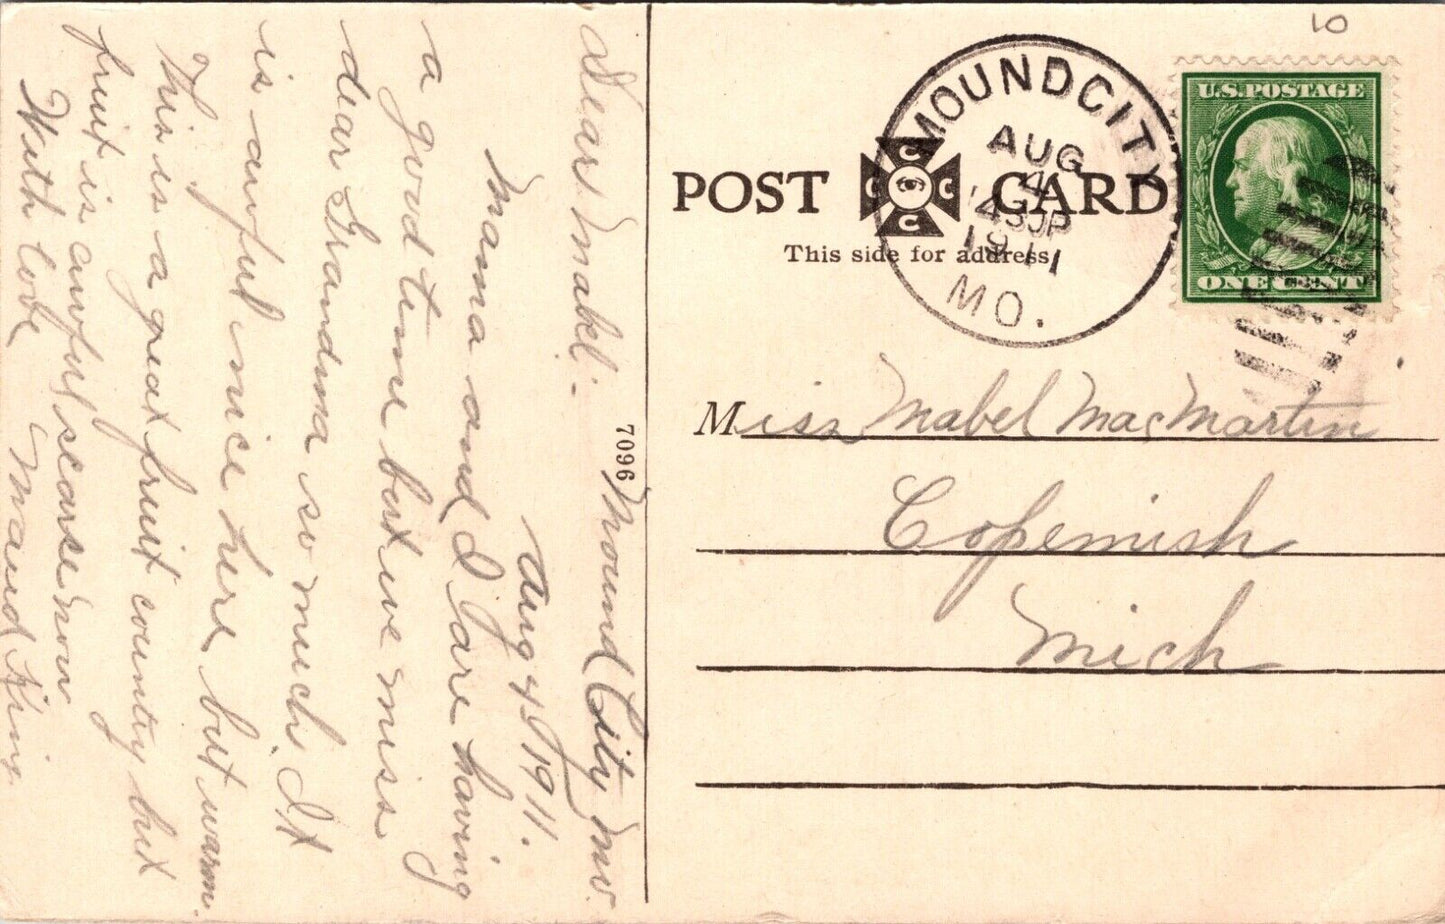 Mound City Mo.
Aug 4, 1911.
Dear Mabel:-
Mama and I are having
a good time but we miss
dear Grandma so much. It
is awful nice here but warm.
This is a great fruit country but
fruit is awful scarse now
With love Maud King.
7096
10
POST CARD
This side for address.
C C C C
MOUND CITY
AUG
4
430P
1911
MO.
U.S. POSTAGE
ONE CENT
Miss Mabel MacMartin
Copemish
Mich